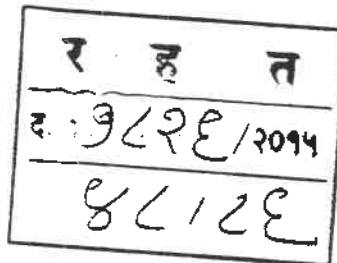 र ह त
द. ७८२६/२०१५
४८/८६